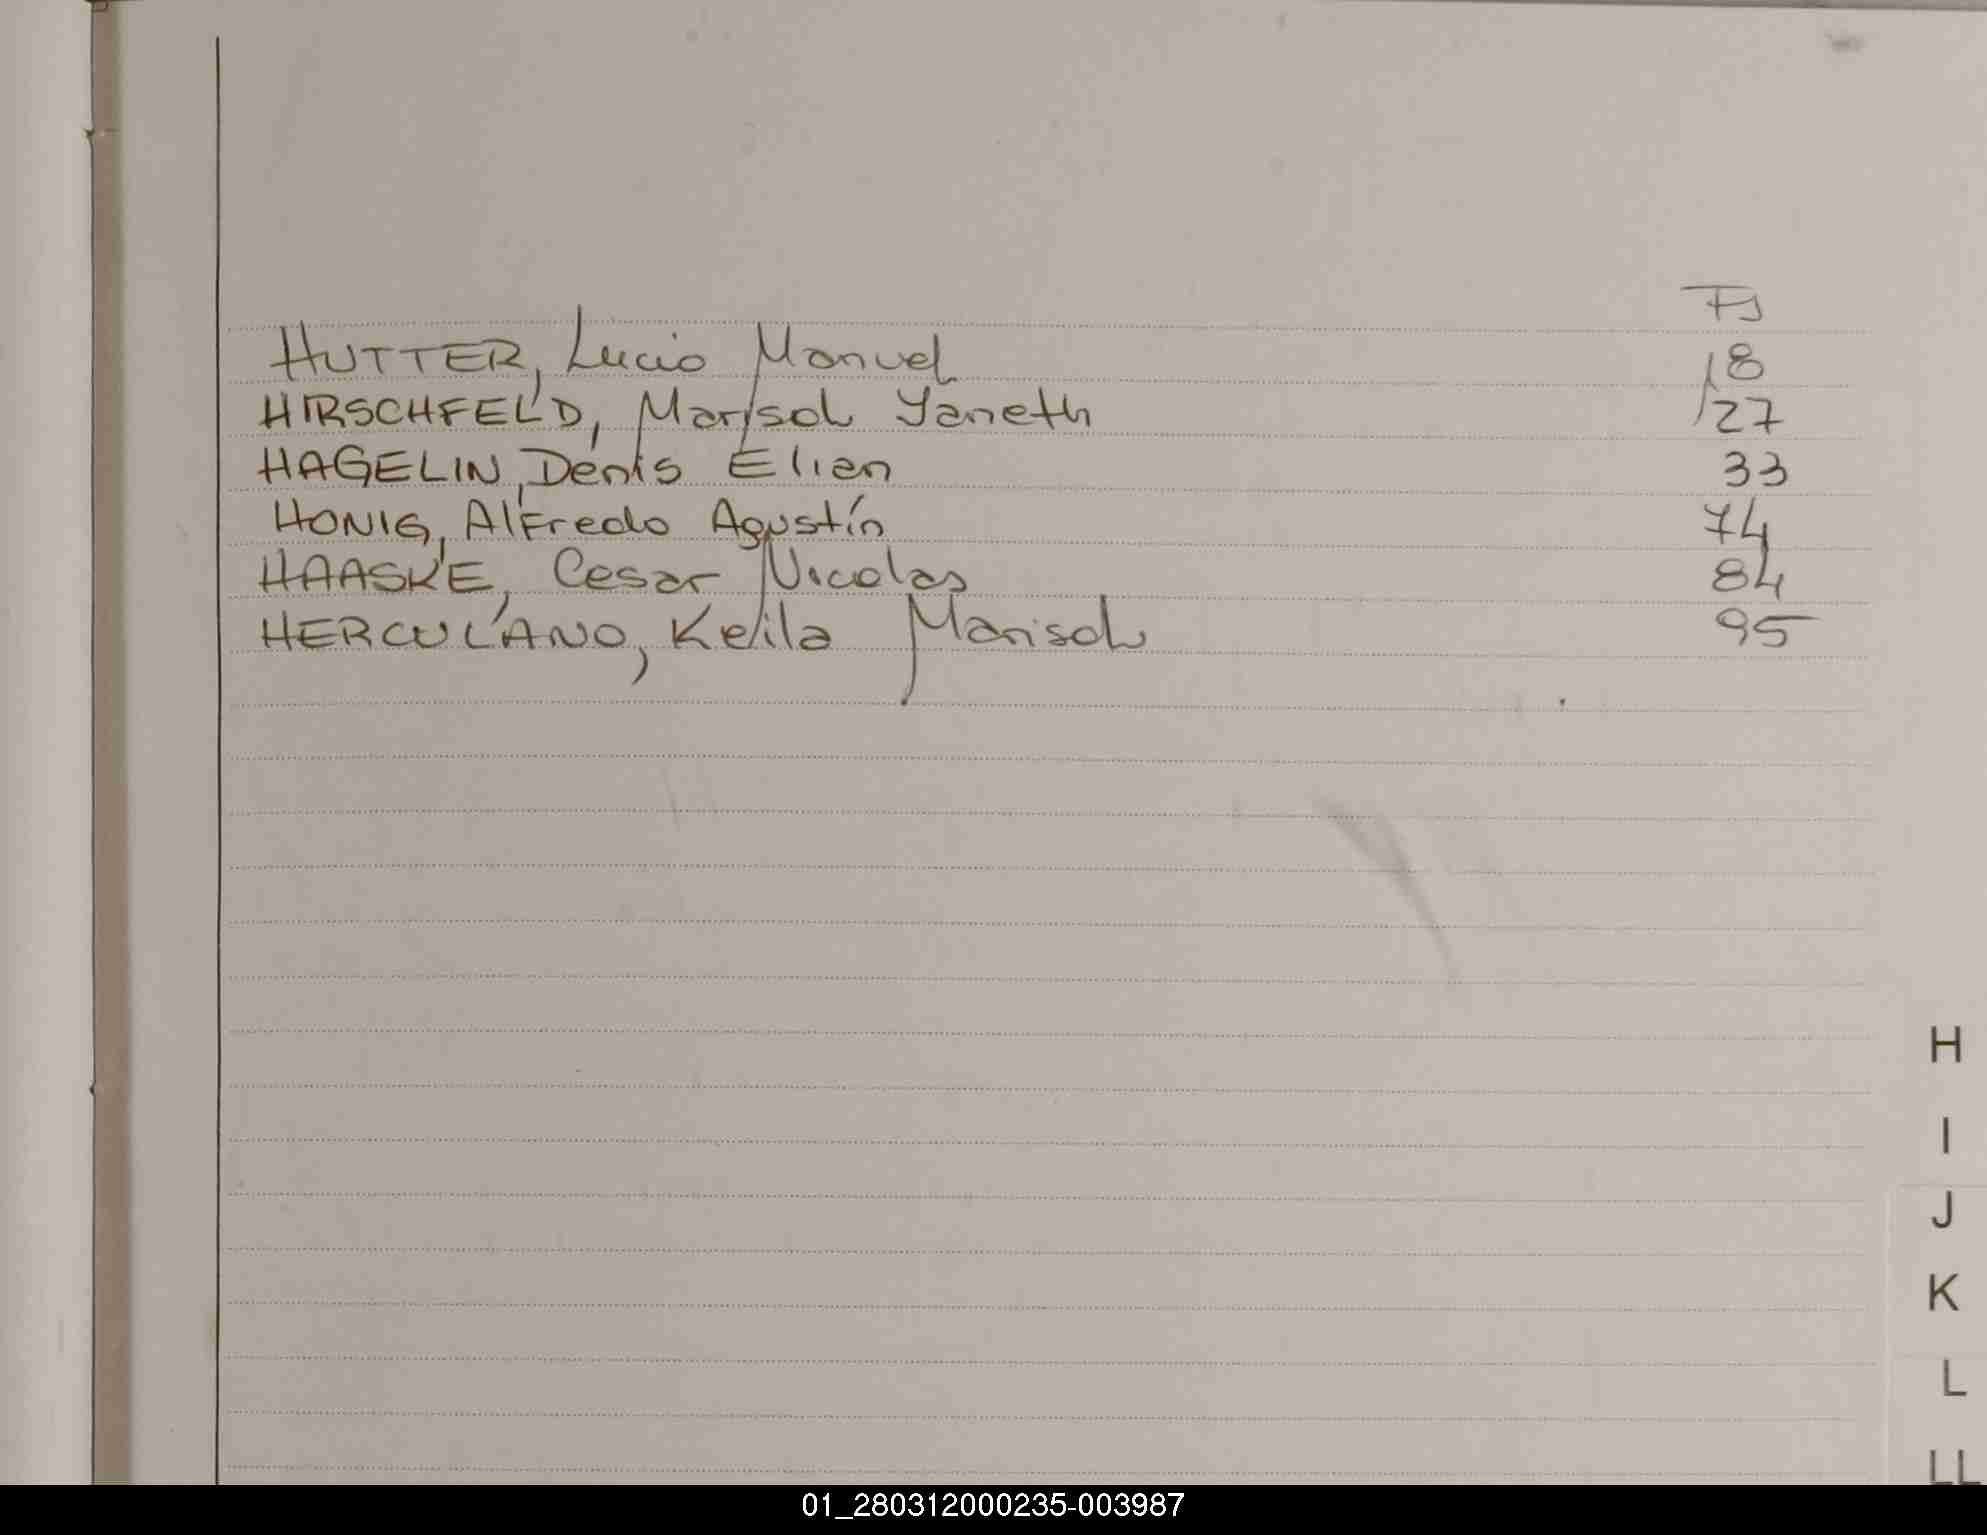 FJ
HUTTER, Lucio Manuel 18
HIRSCHFELD, Marisol Yaneth 27
HAGELIN, Denis Elien 33
HONIG, Alfredo Agustín 74
HAASKE, Cesar Nicolas 84
HERCULANO, Keila Marisol 95
H
I
J
K
L
LL
01_280312000235-003987